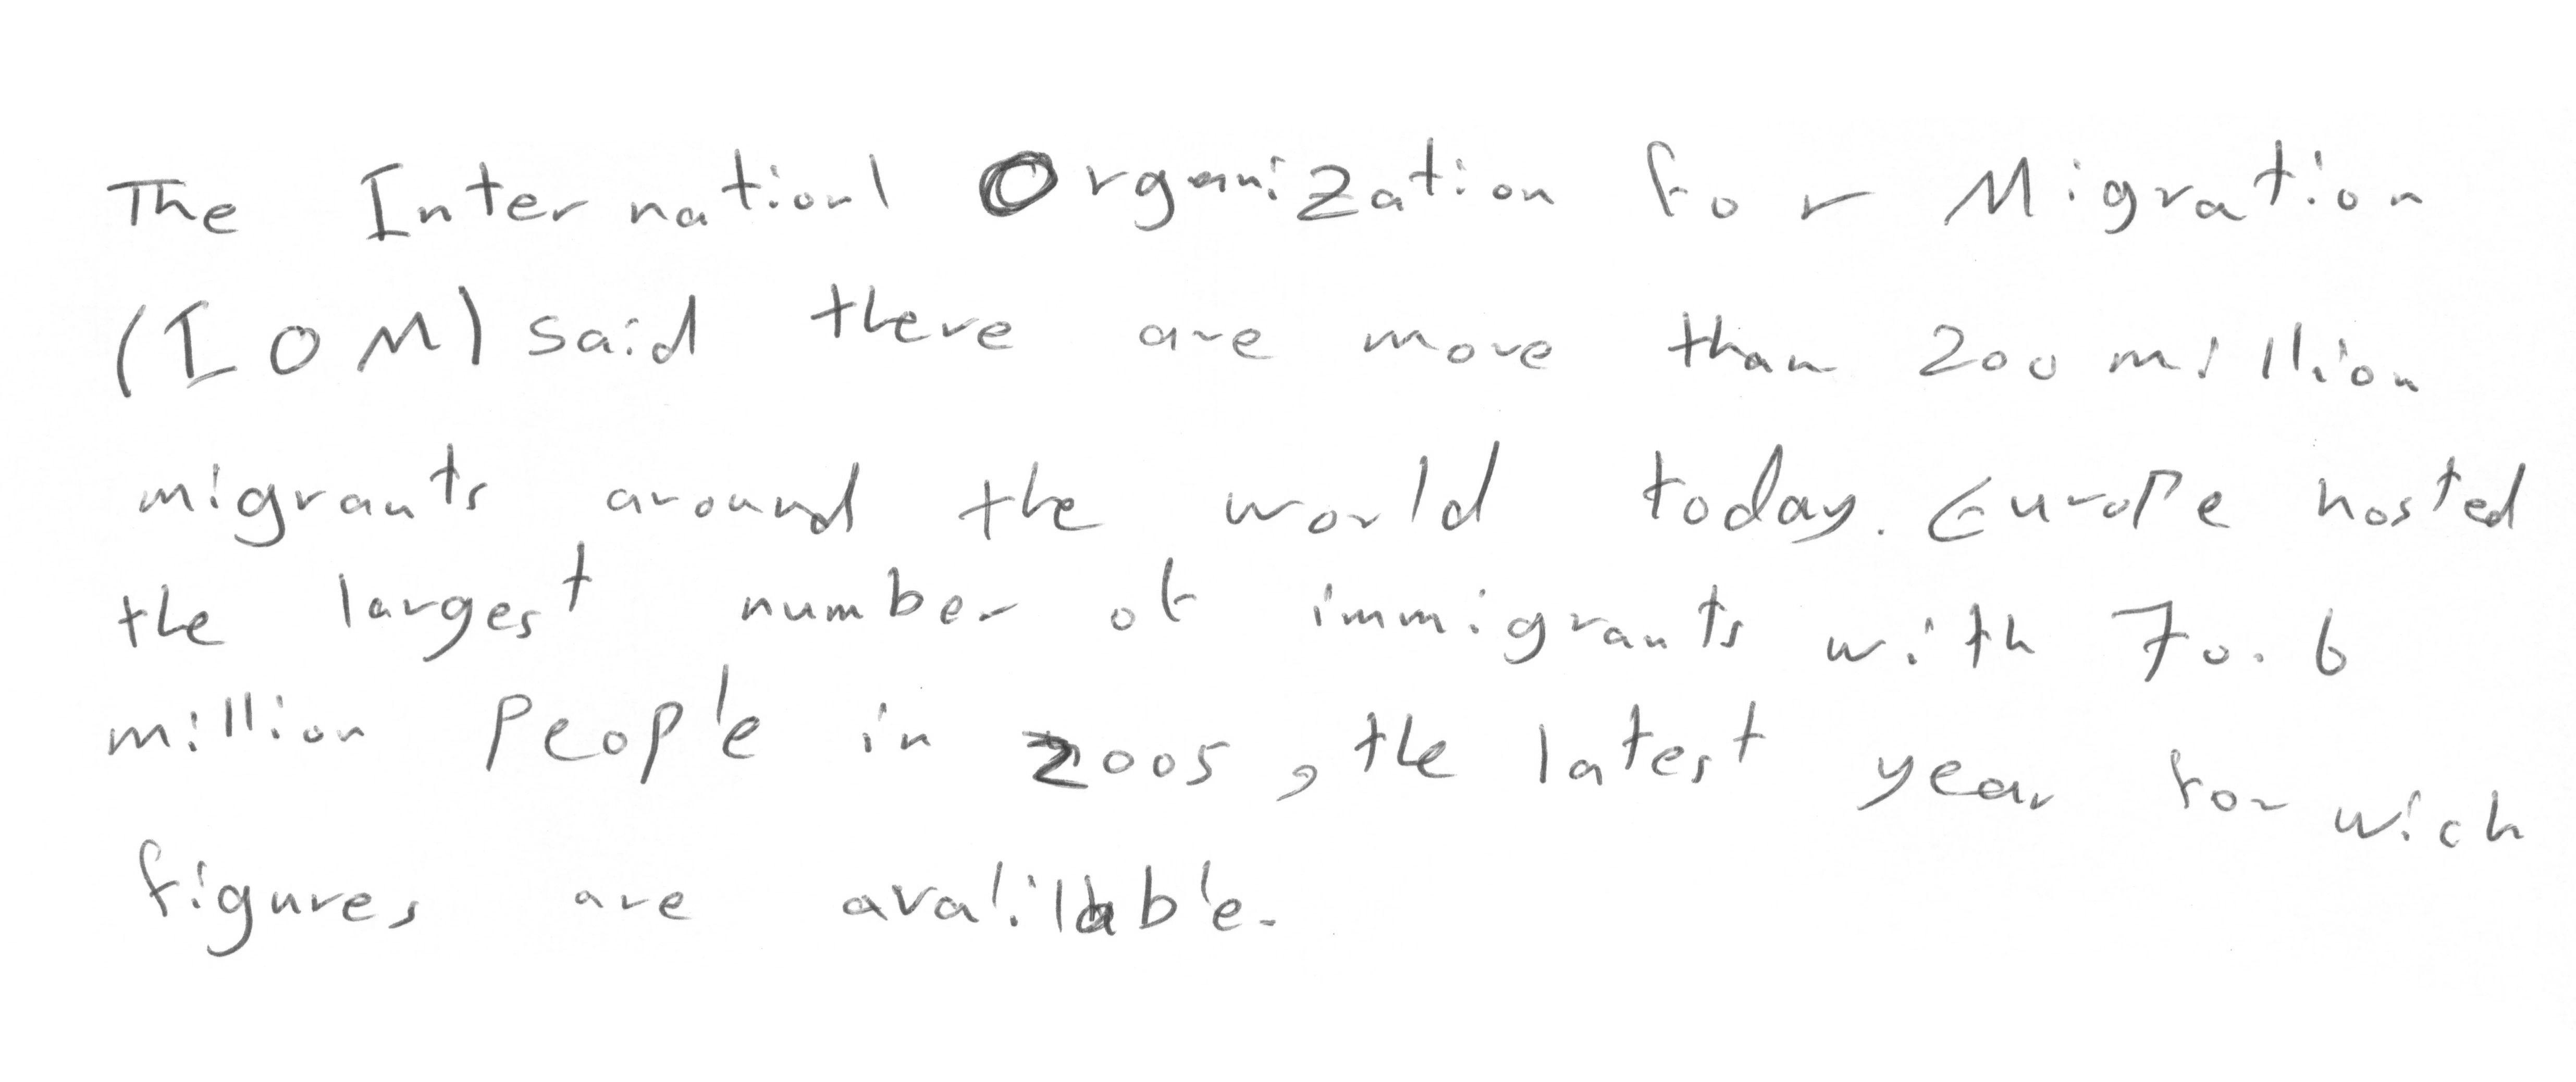 The Internationl Organization for Migration
(IOM) said there are more than 200 million
migrants around the world today. Europe hosted
the largest number of immigrants with 70.6
million People in 2005, the latest year for wich
figures are avalilable.